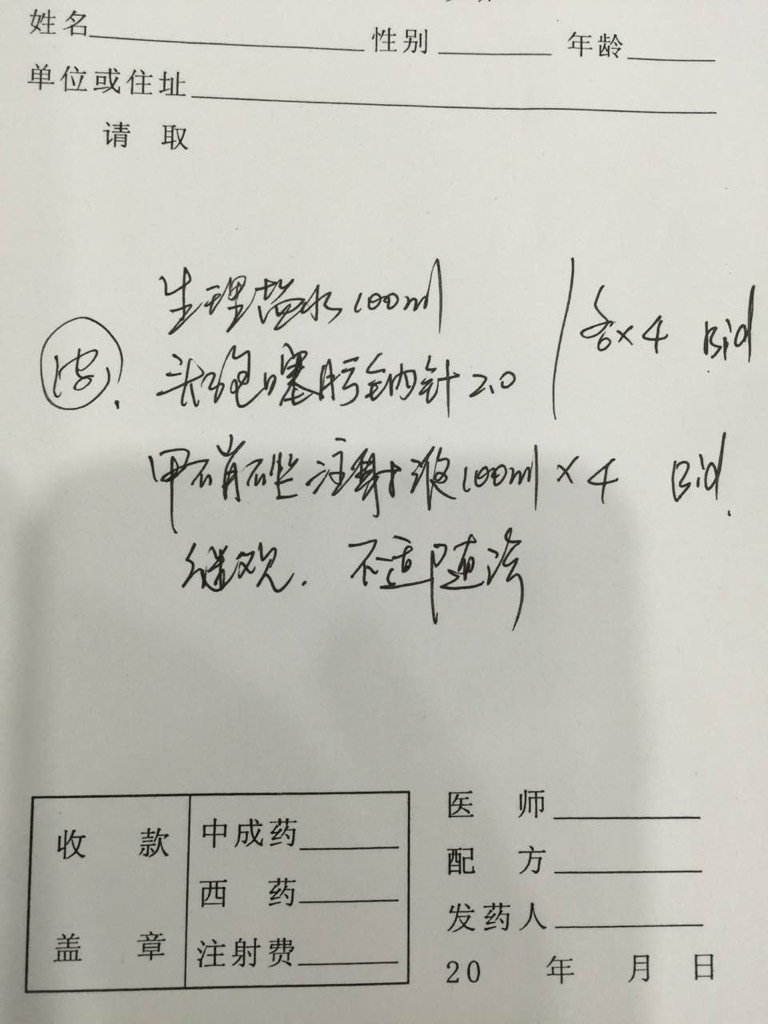 姓名 性别 年龄
单位或住址
请 取
生理盐水100ml
各×4 Bid
头孢噻肟钠针2.0
甲硝唑注射液100ml×4 Bid.
继观. 不适随诊
收 款
盖 章
中成药
西 药
注射费
医 师
配 方
发药人
20 年 月 日